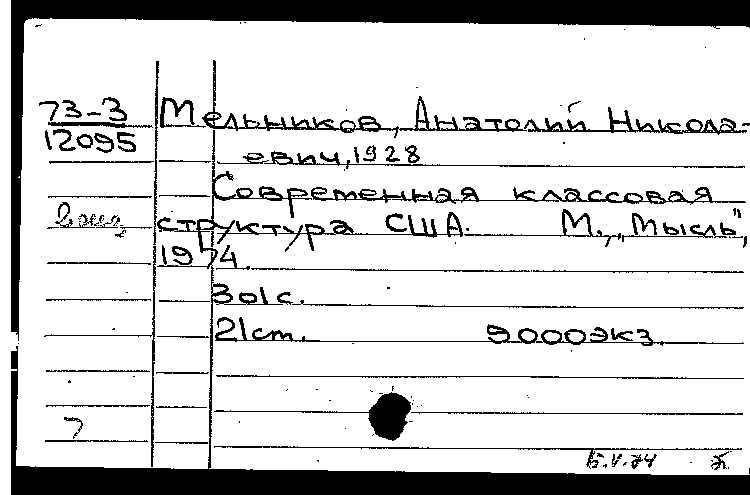 73-3
12095
Мельников, Анатолий Никола-
евич, 1928
Современная классовая
структура США. М., „Мысль",
1974.
301с.
21cm. 9000экз.
7
15.V.74